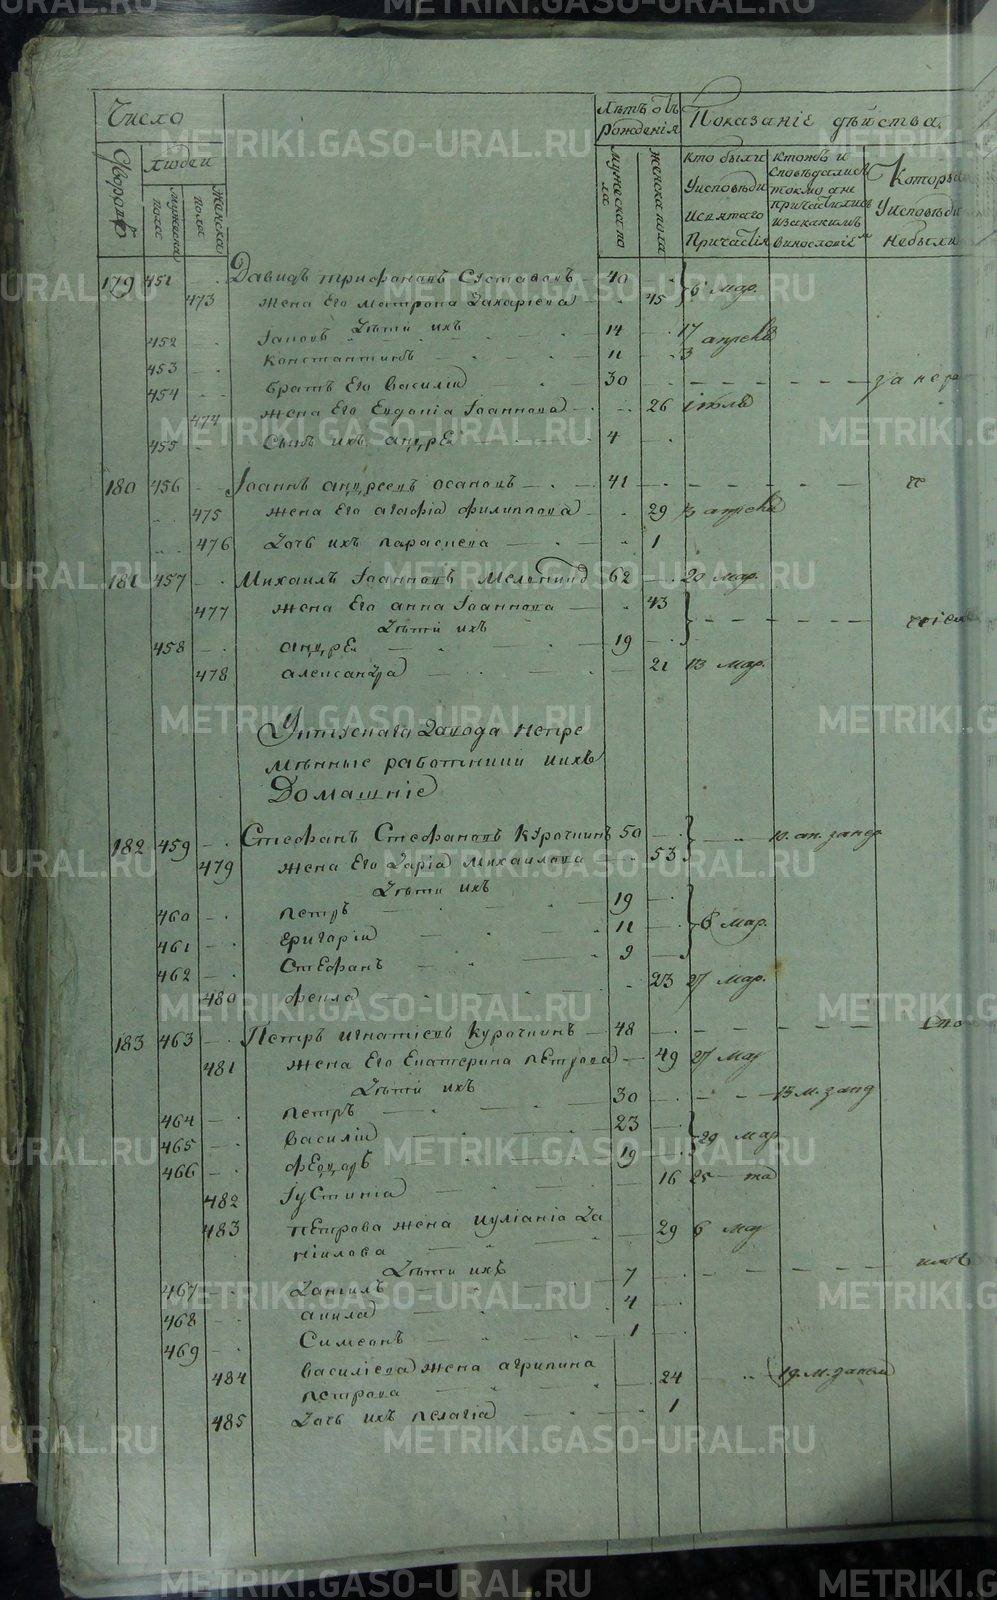 Число
Лѣтъ отъ рожденія
Показаніе дѣйства.
Дворовъ
людей
мужеска пола
женска пола
мужеска пола
женска пола
кто были у исповѣди и святаго Причастія
кто жъ и сповѣдалися токмо а не причастились и за какимъ винословіемъ
Которыи у исповѣди не были
179 451 Давидъ трифановъ 40 6 мар.
473 жена Его матрона Захаріева 45
Дѣти ихъ
452 Іаковъ 14 17 апрелѣ
453 константинъ 11 3
454 братъ Его василіи 30 за нер
474 жена Его Евдокіа Іоаннова 26
455 Сынъ ихъ андрЕи 4
180 456 Іоаннъ андреевъ осановъ 41
475 жена Его агафіа филиппова 29 13 апрелѣ
476 Дочь ихъ параскева 1
181 457 Михаилъ Іоанновъ 62 20 мар.
477 жена Его анна Іоаннова 43
Дѣти ихъ
458 андрЕи 19
478 александра 21 13 мар.
Уктускаго Завода непре
мѣнные работники и ихъ
Домашніе
182 459 Стефанъ Стефановъ Курочкинъ 50 10. ап.
479 жена Его Даріа Михаилова 53
Дѣти ихъ
460 петръ 19
461 григоріи 11 6 мар.
462 стЕфанъ 9
480 фекла 23 27 мар.
183 463 Петръ игнатіевъ Курочкинъ 48
481 жена Его Екатерина пЕтрова 49 27 мар
Дѣти ихъ
464 петръ 30 13 м.
465 василіи 23 29 мар
466 фЕодоръ 19
482 Іустина 16 25
483 пЕтрова жена иуліаніа Да 29 6 мар
ніилова
Дѣти ихъ
467 Даніилъ 7
468 акила 4
469 Симеонъ 1
484 василіева жена агрипина 24 19. м.
петрова
485 Дочь ихъ пелагіа 1
METRIKI.GASO-URAL.RU